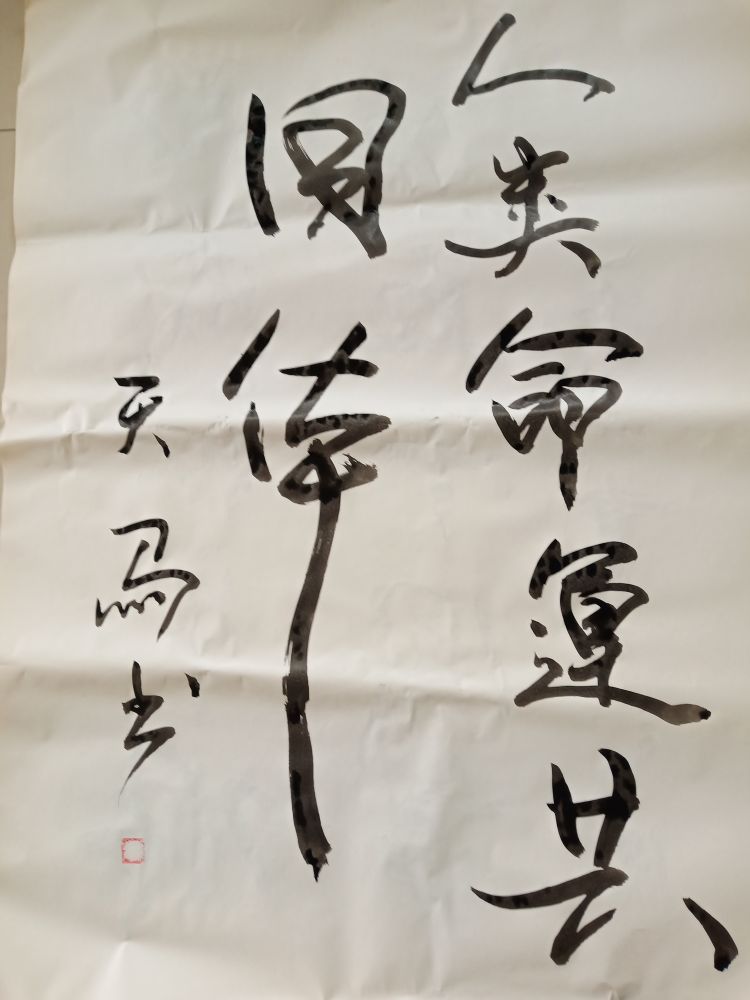 人类命运共
同体
天马书